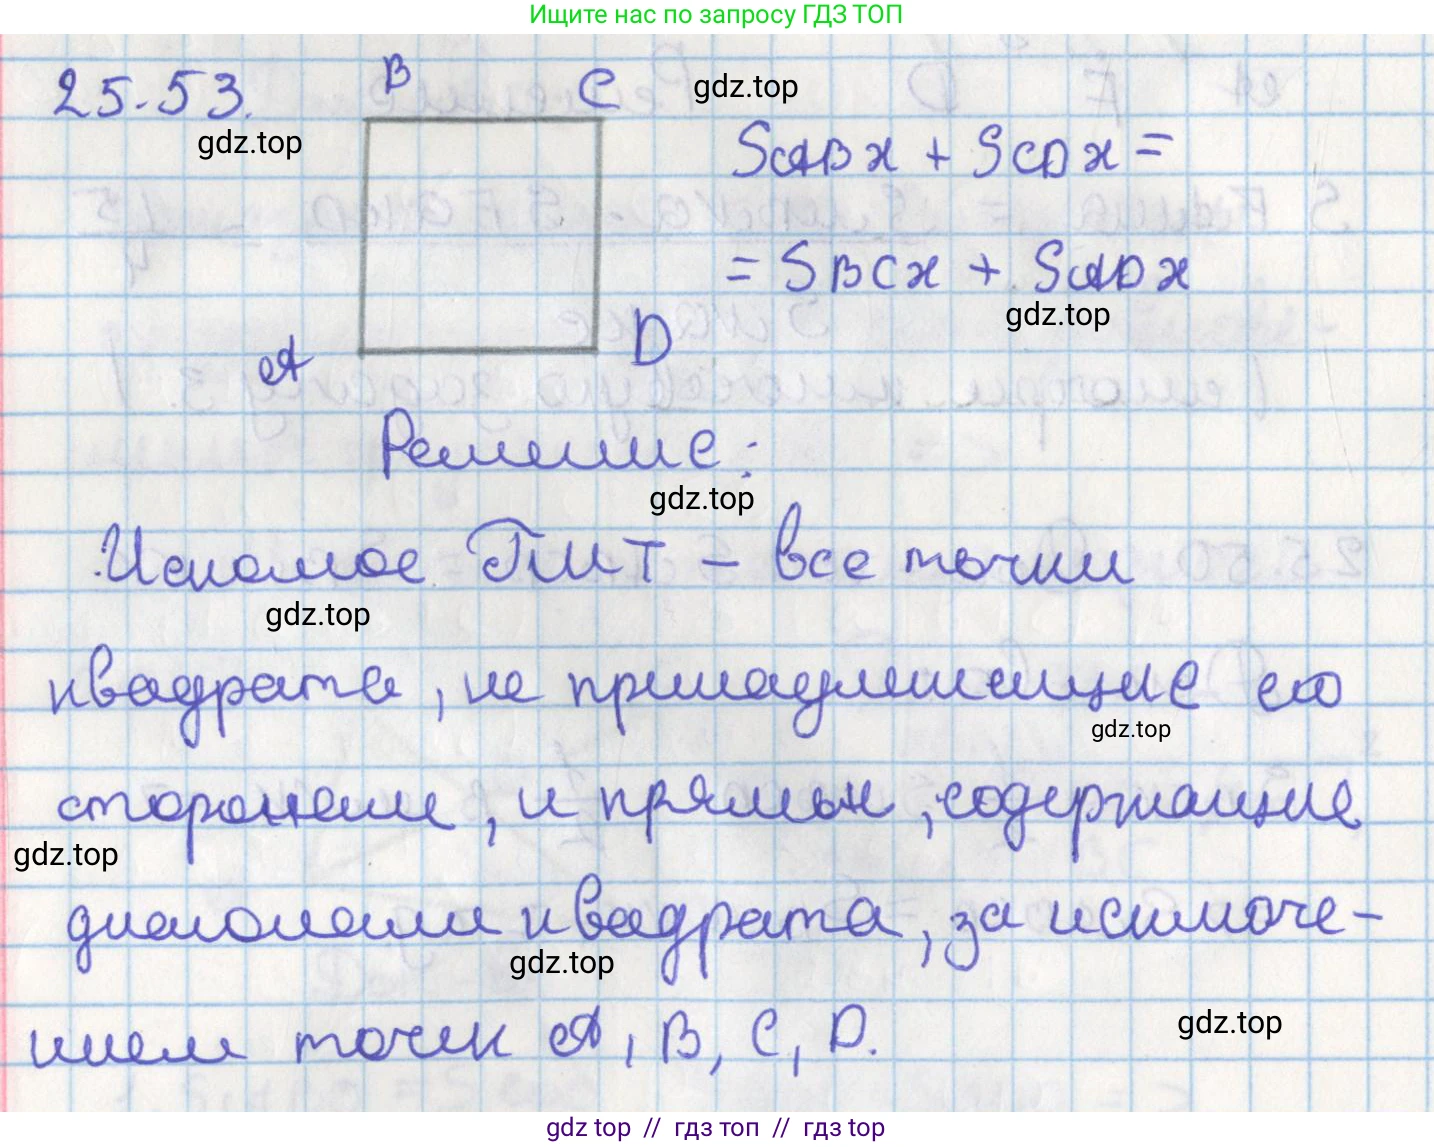 Ищите нас по запросу ГДЗ ТОП
25.53.
B
C
gdz.top
gdz.top
SABX + SCDX =
= SBCX + SADX
gdz.top
A
D
Решение:
gdz.top
Искомое ГМТ – все точки
gdz.top
квадрата, не принадлежащие его
gdz.top
сторонам, и прямых, содержащие
gdz.top
диагонали квадрата, за исключе-
gdz.top
нием точек A, B, C, D.
gdz.top
gdz top // гдз топ // gdz top